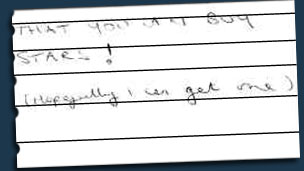 THAT YOU CAN BUY
STARS!
(Hopefully I can get one)